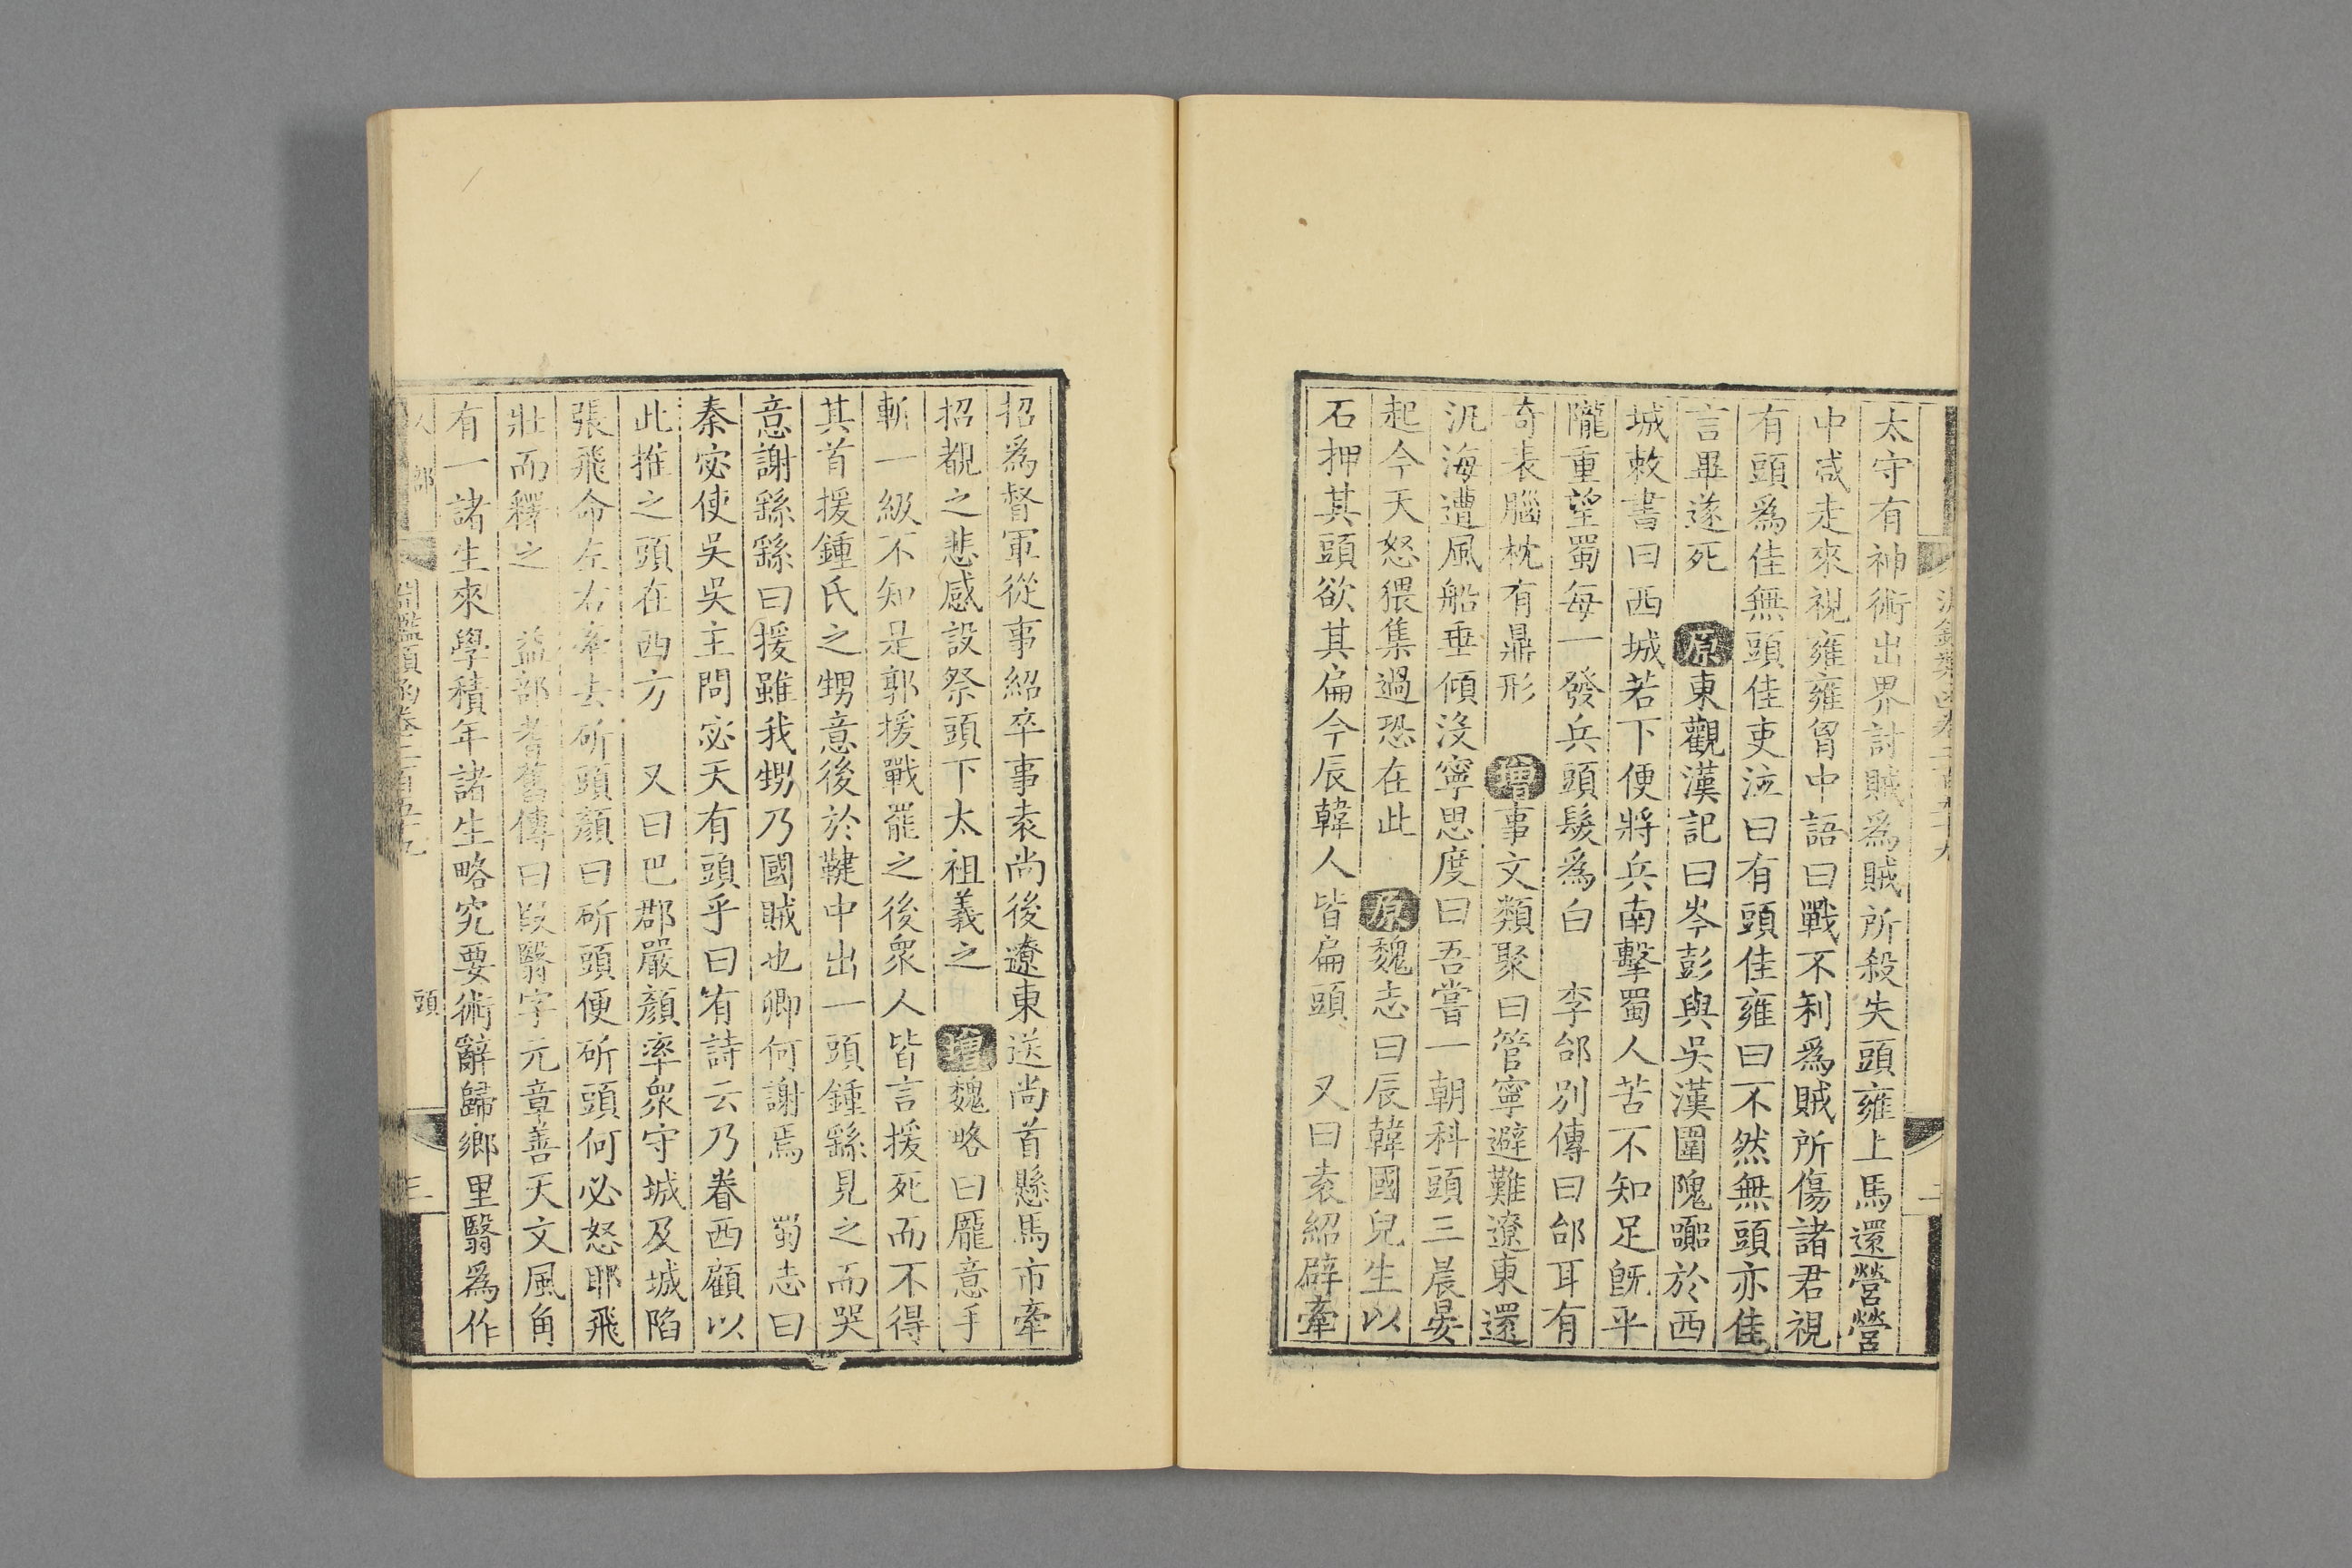 太守有神術出界討賊爲賊所殺失頭雍上馬還營營
中咸走來視雍雍胷中語曰戰不利爲賊所傷諸君視
有頭爲佳無頭佳吏泣曰有頭佳雍曰不然無頭亦佳
言畢遂死 原東觀漢記曰岑彭與吳漢圍隗嚻於西
城敕書曰西城若下便將兵南擊蜀人苦不知足旣平
隴重望蜀每一發兵頭髮爲白 李郃別傳曰郃耳有
奇表腦枕有鼎形 增事文類聚曰管寧避難遼東還
汎海遭風船垂傾沒寧思度曰吾嘗一朝科頭三晨晏
起今天怒猥集過恐在此 原魏志曰辰韓國兒生以
石押其頭欲其扁今辰韓人皆扁頭 又曰袁紹辟牽
招爲督軍從事紹卒事袁尚後遼東送尚首懸馬市牽
招覩之悲感設祭頭下太祖義之 增魏略曰龐意手
斬一級不知是郭援戰罷之後衆人皆言援死而不得
其首援鍾氏之甥意後於鞬中出一頭鍾繇見之而哭
意謝繇繇曰援雖我甥乃國賊也卿何謝焉 蜀志曰
秦宓使吳吳主問宓天有頭乎曰有詩云乃眷西顧以
此推之頭在西方 又曰巴郡嚴顏率衆守城及城陷
張飛命左右牽去斫頭顏曰斫頭便斫頭何必怒耶飛
壯而釋之 益部耆舊傳曰段翳字元章善天文風角
有一諸生來學積年諸生略究要術辭歸鄉里翳爲作
部 淵鑑類函卷二百五十九 頭 三